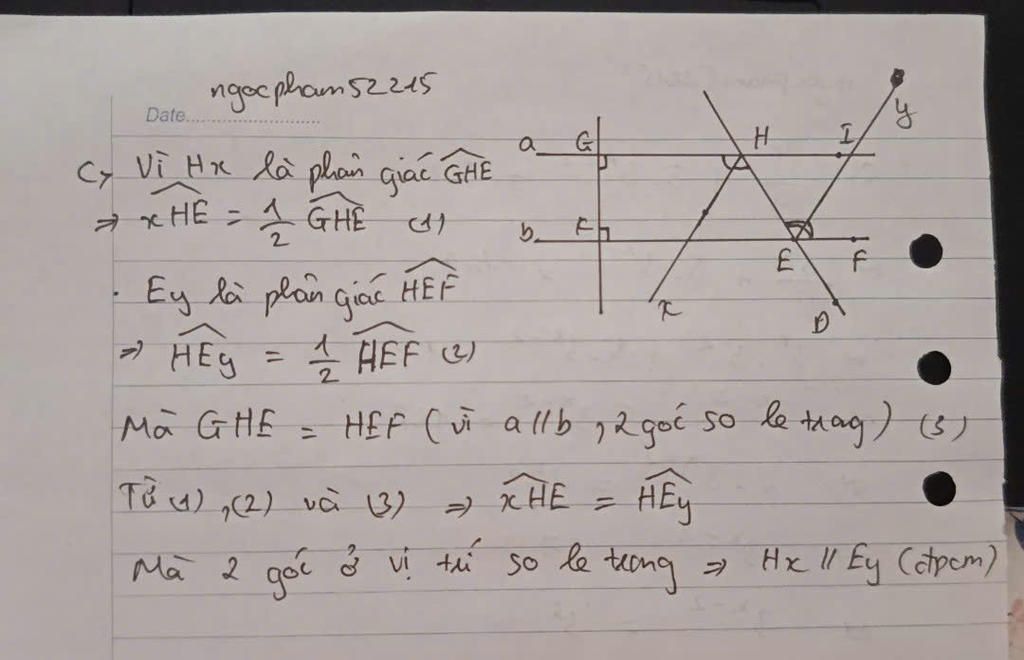 ngocpham52215
Date..............................
C, Vì Hx là phân giác GHE
⇒ xHE = 1/2 GHE (1)
· Ey là phân giác HEF
⇒ HEy = 1/2 HEF (2)
Mà GHE = HEF (vì a//b, 2 góc so le trag) (3)
Từ (1), (2) và (3) ⇒ xHE = HEy
Mà 2 góc ở vị trí so le trong ⇒ Hx // Ey (đpcm)
a G H I y
b F E F
x D